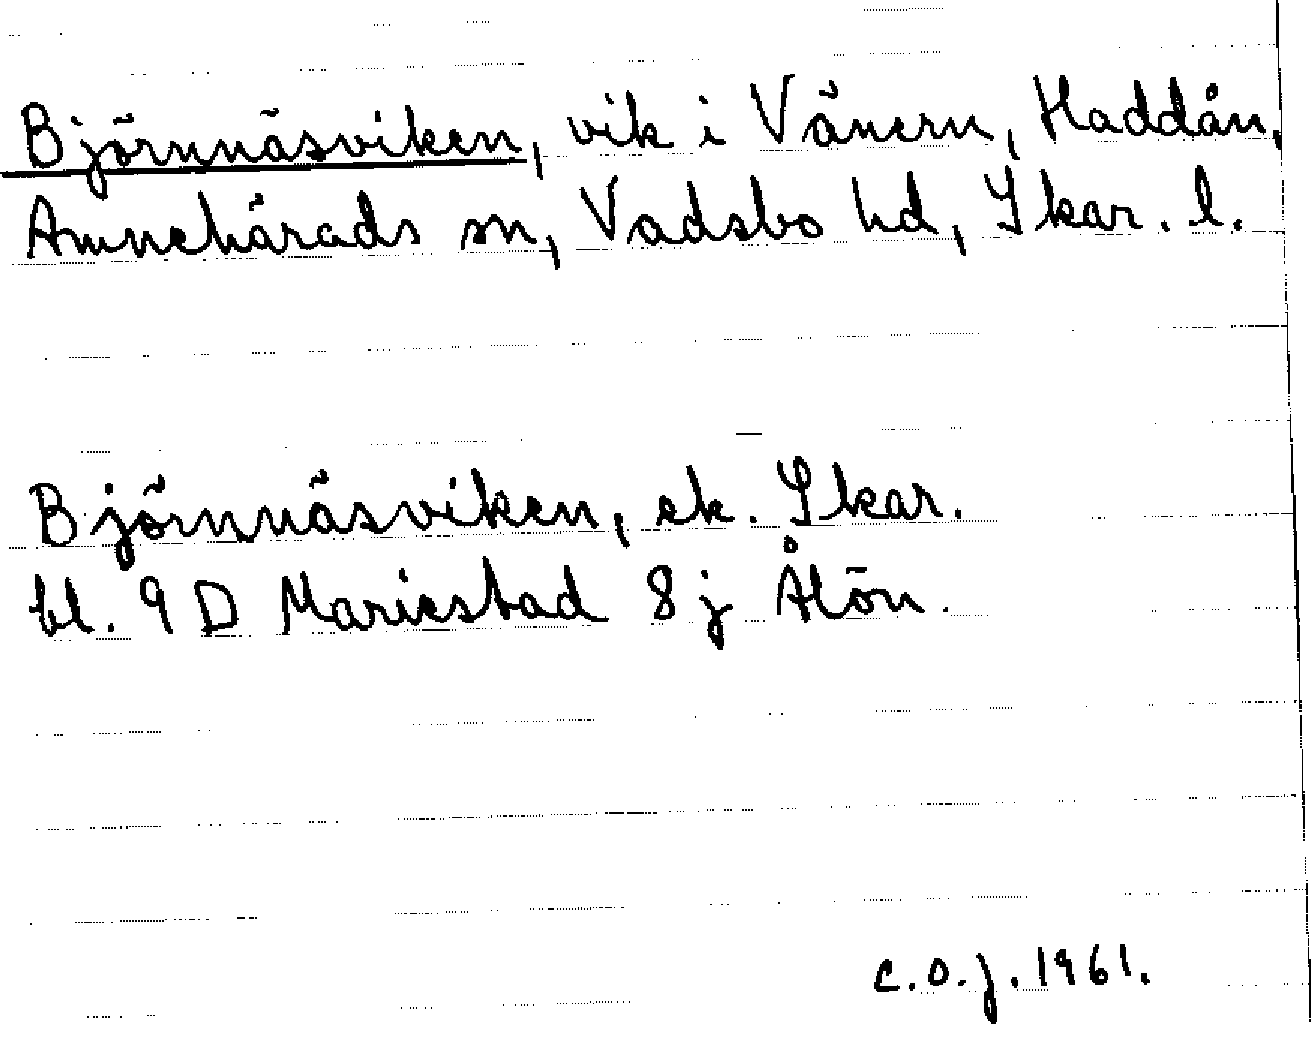 Björnnäsviken, vik i Vänern, Haddån,
Amnehärads sn, Vadsbo hd, Skar. l.
Björnnäsviken, ek. Skar.
bl. 9 D Mariestad 8 j Ålön.
C.O.J. 1961.